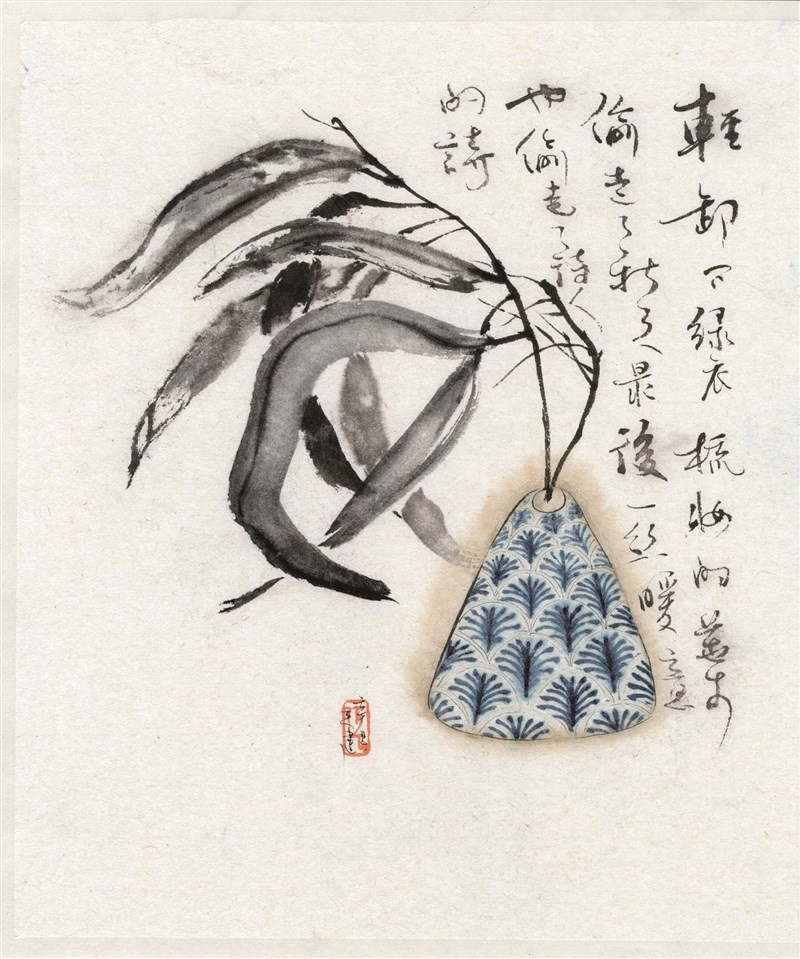 輕卸下綠衣 梳妝的
偷走了秋天最後一絲暖意
也偷走了詩人
的詩